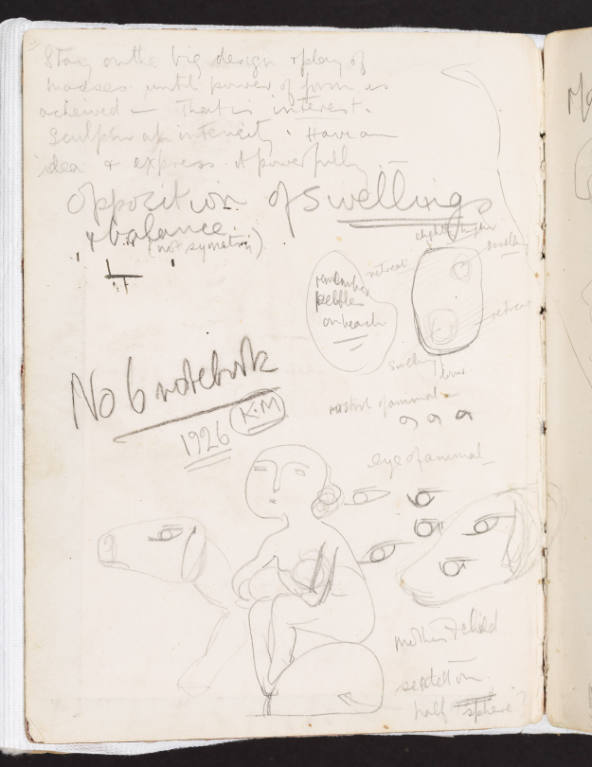 Stay on the big design & play of
masses until power of form is
acheived — That is interest.
Sculptural intensity. Have an
idea & express it powerfully —
Opposition of swellings
& balance.
(not symetry)
slight
swelling
retreat
remember
pebbles
on beach
retreat
swelling
No 6 notebook
1926 K.M
nostril of animal
eye of animal
mother & child
seated on
half sphere?
Ma